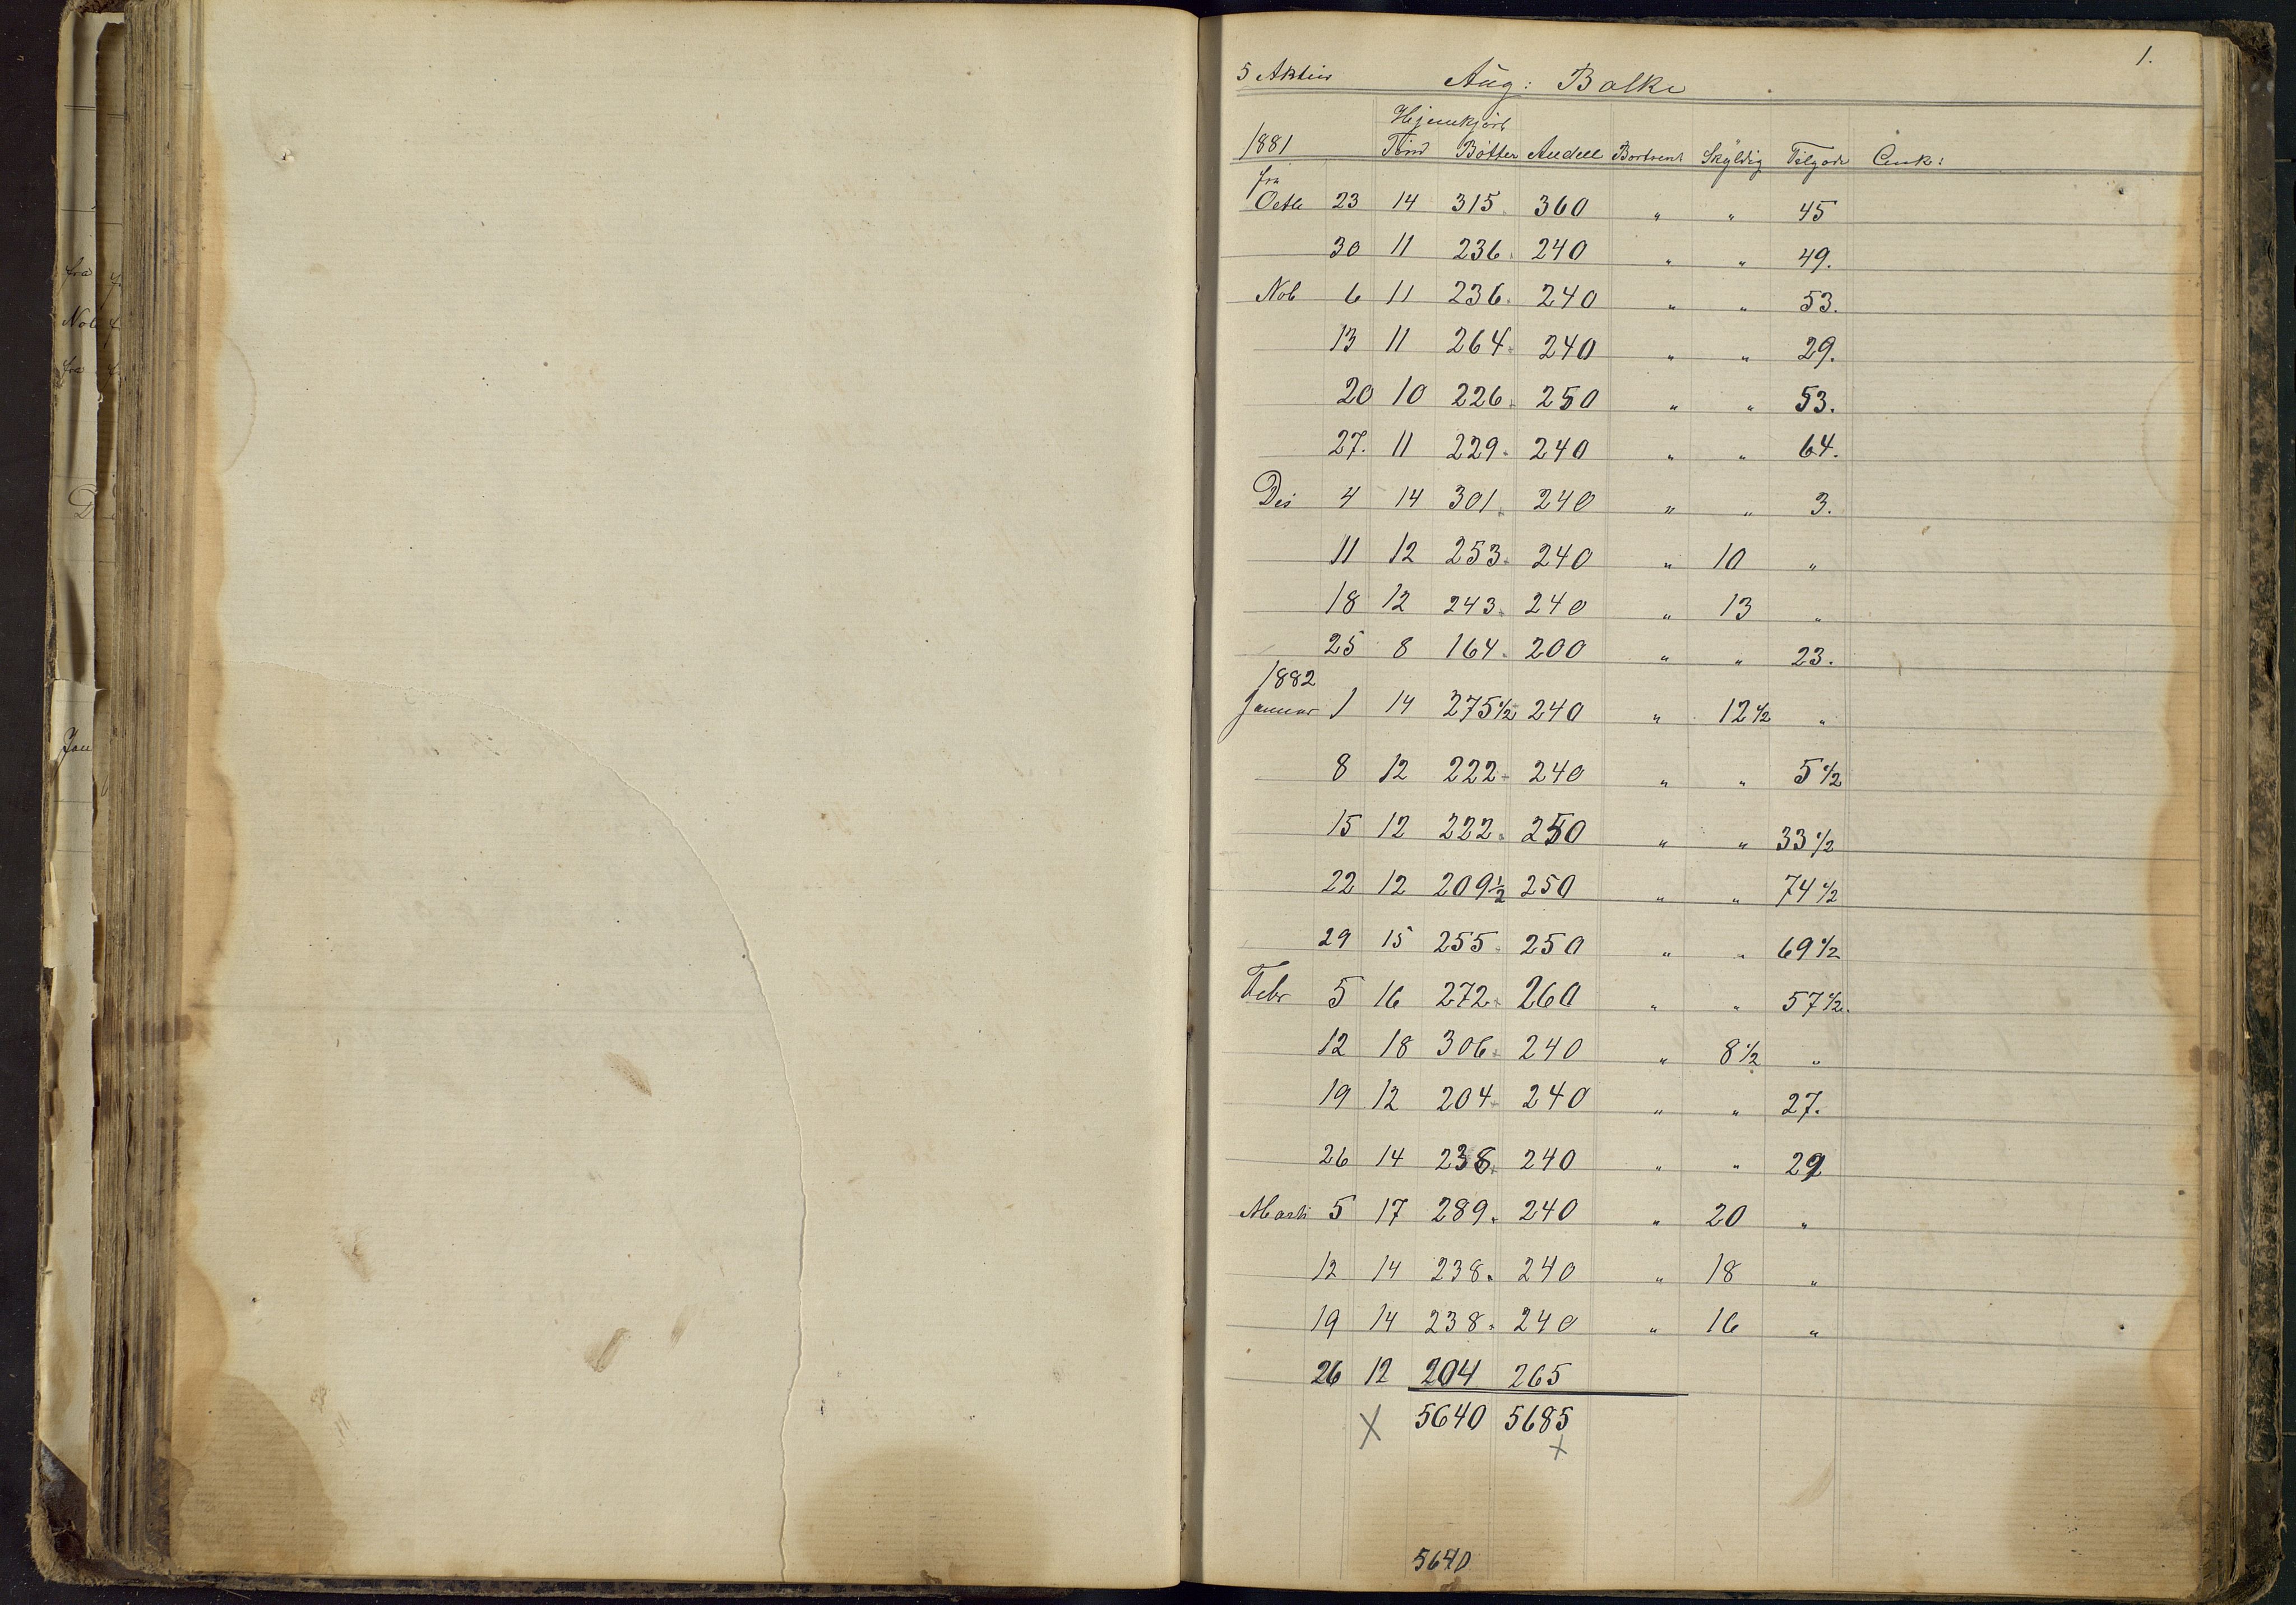 fra
Nob 4
fra
Jan
1.
5 Aktier Aug: Balke
Hjemkjört
1881 Tönd Bötter Andeel Bortvent Skyldig Tilgode Ank:
fra
Octb 23 14 315. 360 " " 45
30 11 236. 240 " " 49.
Nob 6 11 236. 240 " " 53.
13 11 264. 240 " " 29.
20 10 226. 250 " " 53.
27. 11 229. 240 " " 64.
Des 4 14 301. 240 " " 3.
11 12 253. 240 " 10 "
18 12 243. 240 " 13 "
25 8 164. 200 " " 23.
1882
Januar 1 14 275 1/2 240 " 12 1/2 "
8 12 222. 240 " " 5 1/2
15 12 222. 250 " " 33 1/2
22 12 209 1/2 250 " " 74 1/2
29 15 255. 250 " " 69 1/2
Febr 5 16 272. 260 " " 57 1/2.
12 18 306. 240 " 8 1/2 "
19 12 204. 240 " " 27.
26 14 238. 240 " " 29
Marti 5 17 289. 240 " 20 "
12 14 238. 240 " 18 "
19 14 238. 240 " 16 "
26 12 204 265
X 5640 5685
X
5640